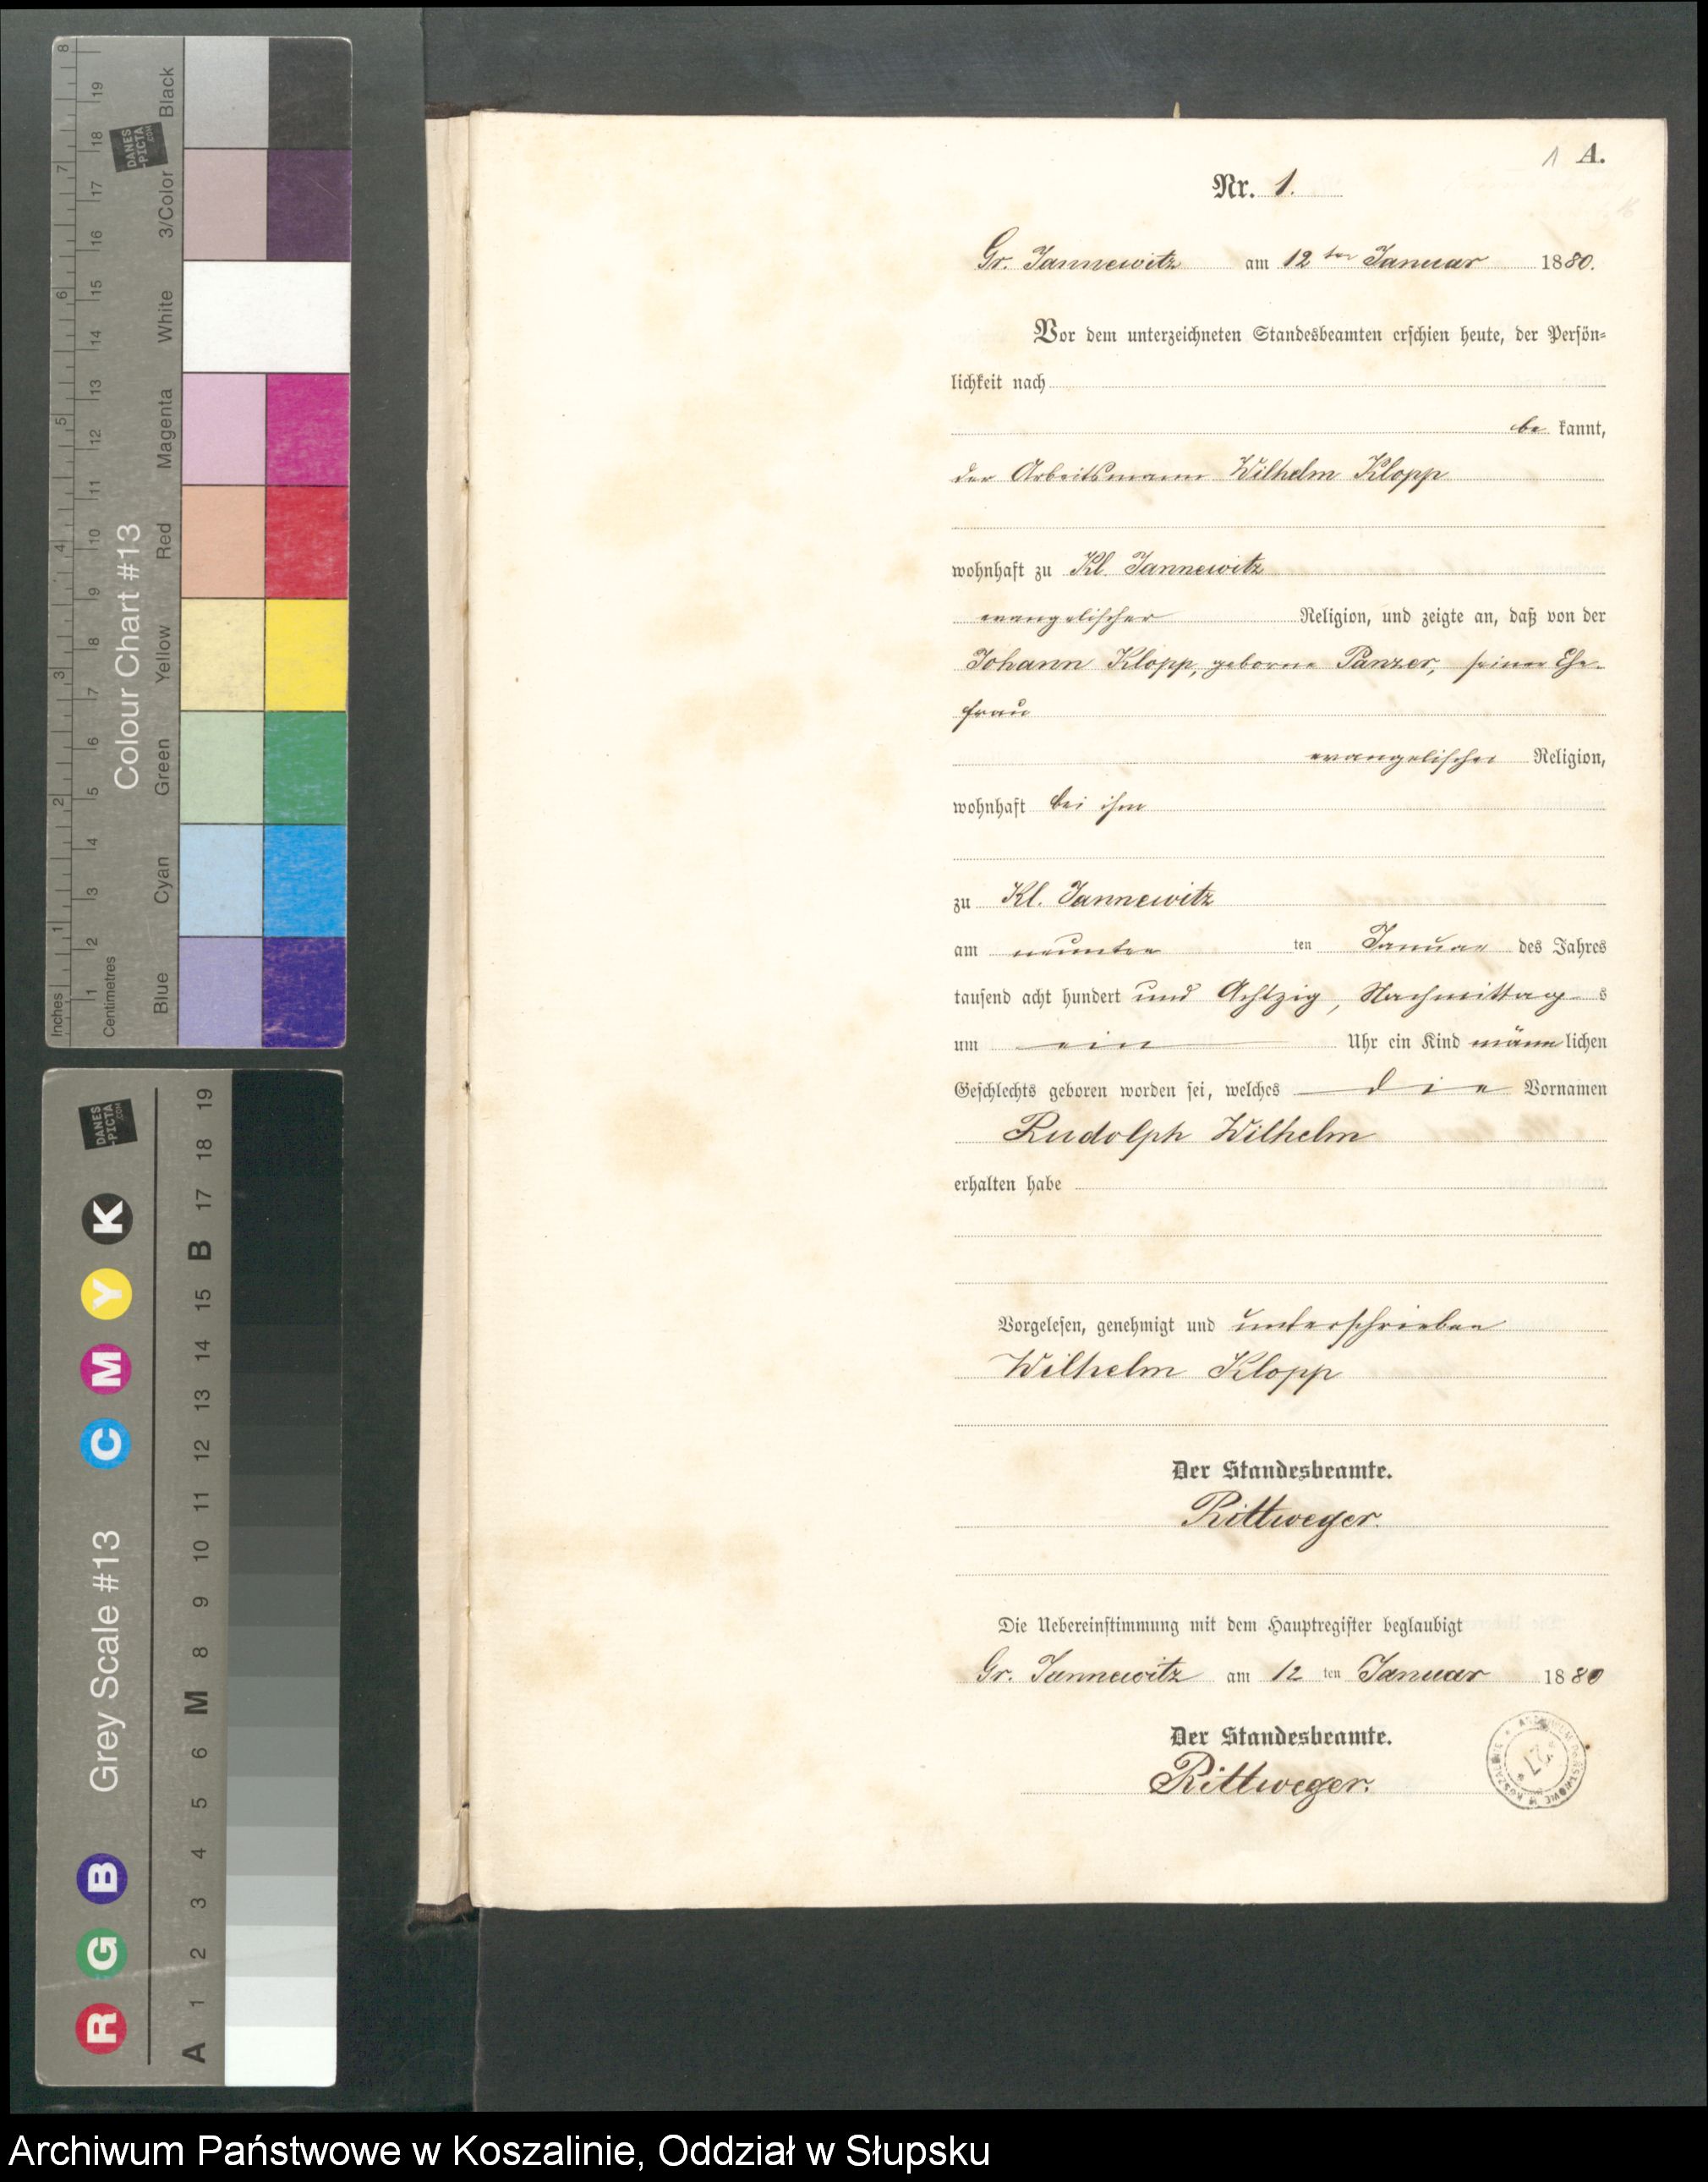 1 A.
Nr. 1.
Gr. Jannewitz am 12ten Januar 1880.
Vor dem unterzeichneten Standesbeamten erschien heute, der Persön-
lichkeit nach
be kannt,
der Arbeitsmann Wilhelm Klopp
wohnhaft zu Kl. Jannewitz
evangelischer Religion, und zeigte an, daß von der
Johann Klopp, geborne Panzer, seiner Ehe-
frau
evangelischer Religion,
wohnhaft bei ihm
zu Kl. Jannewitz
am neunten ten Januar des Jahres
tausend acht hundert und Achtzig, Nachmittag s
um ein Uhr ein Kind männ lichen
Geschlechts geboren worden sei, welches die Vornamen
Rudolph Wilhelm
erhalten habe
Vorgelesen, genehmigt und unterschrieben
Wilhelm Klopp
Der Standesbeamte.
Rittweger.
Die Uebereinstimmung mit dem Hauptregister beglaubigt
Gr. Jannewitz am 12 ten Januar 1880
Der Standesbeamte.
Rittweger.
Colour Chart #13
DANES
-PICTA
.COM
Inches 1 2 3 4 5 6 7 8
Centimetres 1 2 3 4 5 6 7 8 9 10 11 12 13 14 15 16 17 18 19
Blue Cyan Green Yellow Red Magenta White 3/Color Black
Grey Scale #13
DANES
-PICTA
.COM
R G B C M Y K
A 1 2 3 4 5 6 M 8 9 10 11 12 13 14 15 B 17 18 19
Archiwum Państwowe w Koszalinie, Oddział w Słupsku